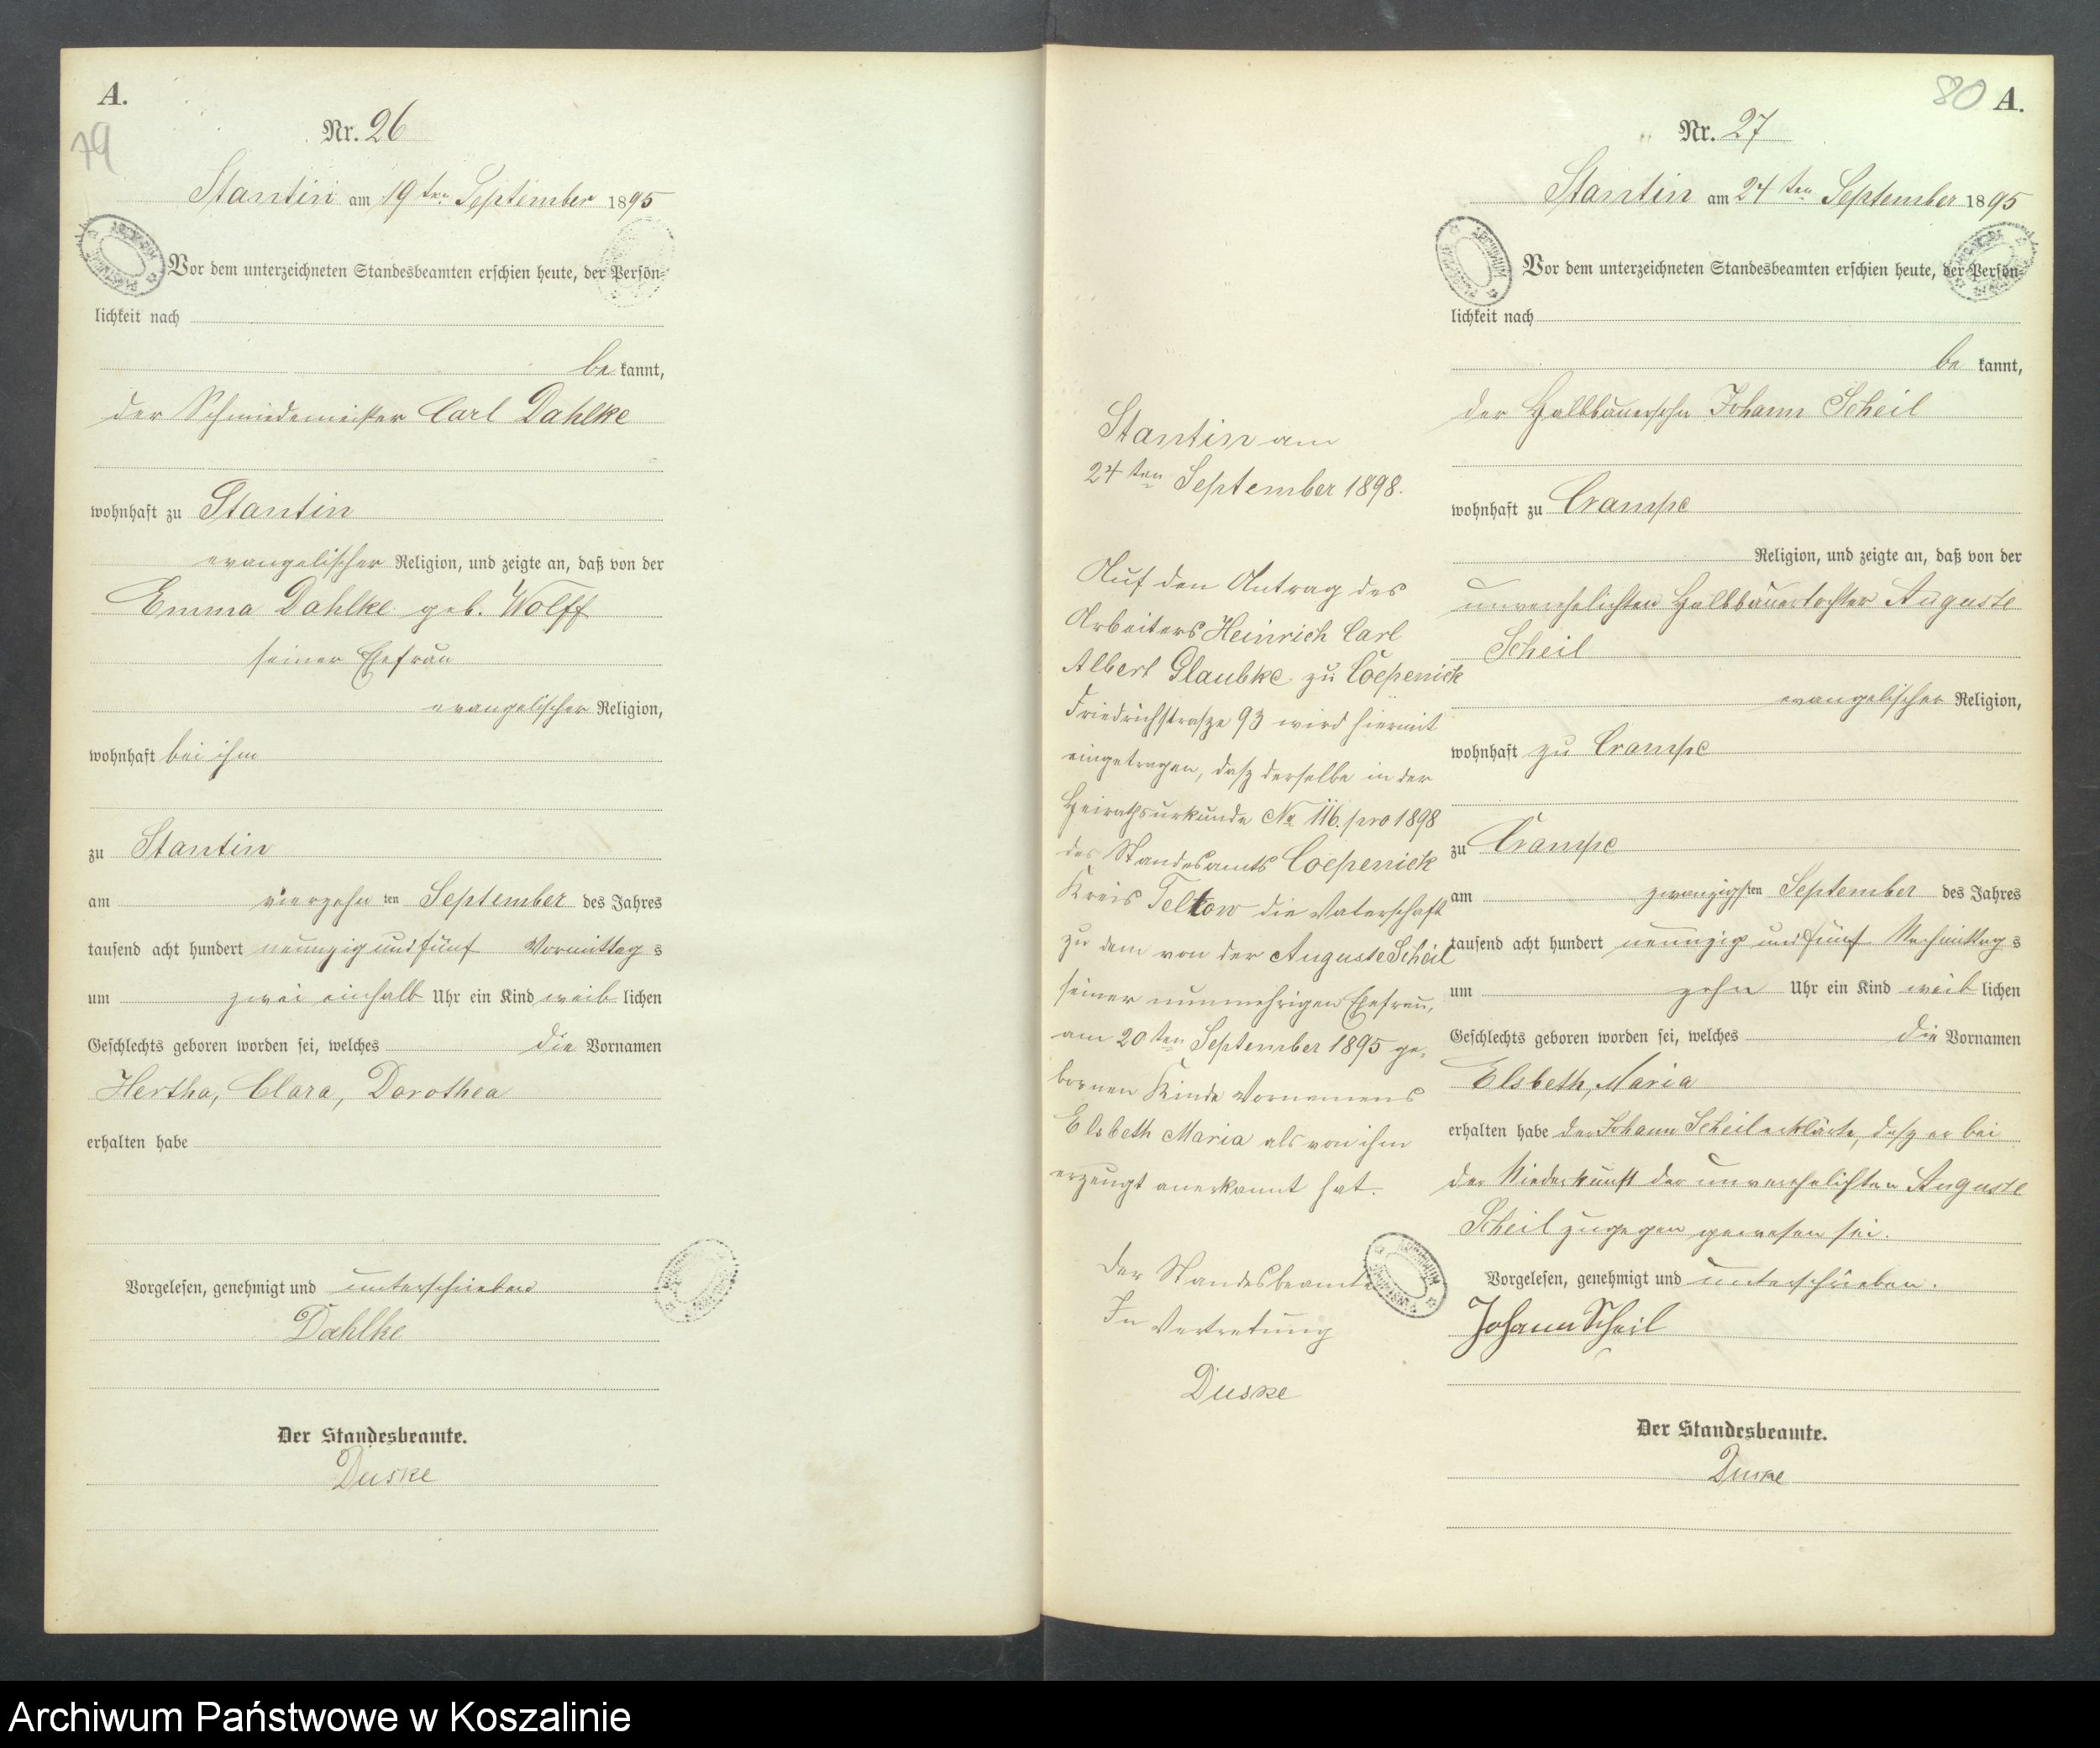 A.
79
Nr. 26
Stantin am 19ten September 1895
Vor dem unterzeichneten Standesbeamten erschien heute, der Persön-
lichkeit nach
be kannt,
der Schmiedemeister Carl Dahlke
wohnhaft zu Stantin
evangelischer Religion, und zeigte an, daß von der
Emma Dahlke geb. Wolff
seiner Ehefrau
evangelischer Religion,
wohnhaft bei ihm
zu Stantin
am vierzehn ten September des Jahres
tausend acht hundert neunzig und fünf Vormittag s
um zwei einhalb Uhr ein Kind weib lichen
Geschlechts geboren worden sei, welches die Vornamen
Hertha, Clara, Dorothea
erhalten habe
Vorgelesen, genehmigt und unterschrieben
Dahlke
Der Standesbeamte.
Duske
Stantin am
24ten September 1898.
Auf den Antrag des
Arbeiters Heinrich Carl
Albert Glaubke zu Coepenick
Friedrichstrasze 93 wird hiermit
eingetragen, dasz derselbe in der
Heirathsurkunde No 116. pro 1898
des Standesamts Coepenick
Kreis Teltow die Vaterschaft
zu dem von der Auguste Scheil
seiner nunmehrigen Ehefrau,
am 20ten September 1895 ge-
bornen Kinde Vornamens
Elsbeth Maria als von ihm
erzeugt anerkannt hat.
Der Standesbeamte
In Vertretung
Duske
80 A.
Nr. 27
Stantin am 24ten September 1895
Vor dem unterzeichneten Standesbeamten erschien heute, der Persön-
lichkeit nach
be kannt,
der Halbbauersohn Johann Scheil
wohnhaft zu Crampe
Religion, und zeigte an, daß von der
unverehelichten Halbbauertochter Auguste
Scheil
evangelischer Religion,
wohnhaft zu Crampe
zu Crampe
am zwanzigsten September des Jahres
tausend acht hundert neunzig und fünf Nachmittag s
um zehn Uhr ein Kind weib lichen
Geschlechts geboren worden sei, welches die Vornamen
Elsbeth, Maria
erhalten habe der Johann Scheil erklärte, dasz er bei
der Niederkunft der unverehelichten Auguste
Scheil zugegen gewesen sei.
Vorgelesen, genehmigt und unterschrieben.
Johann Scheil
Der Standesbeamte.
Duske
Archiwum Państwowe w Koszalinie